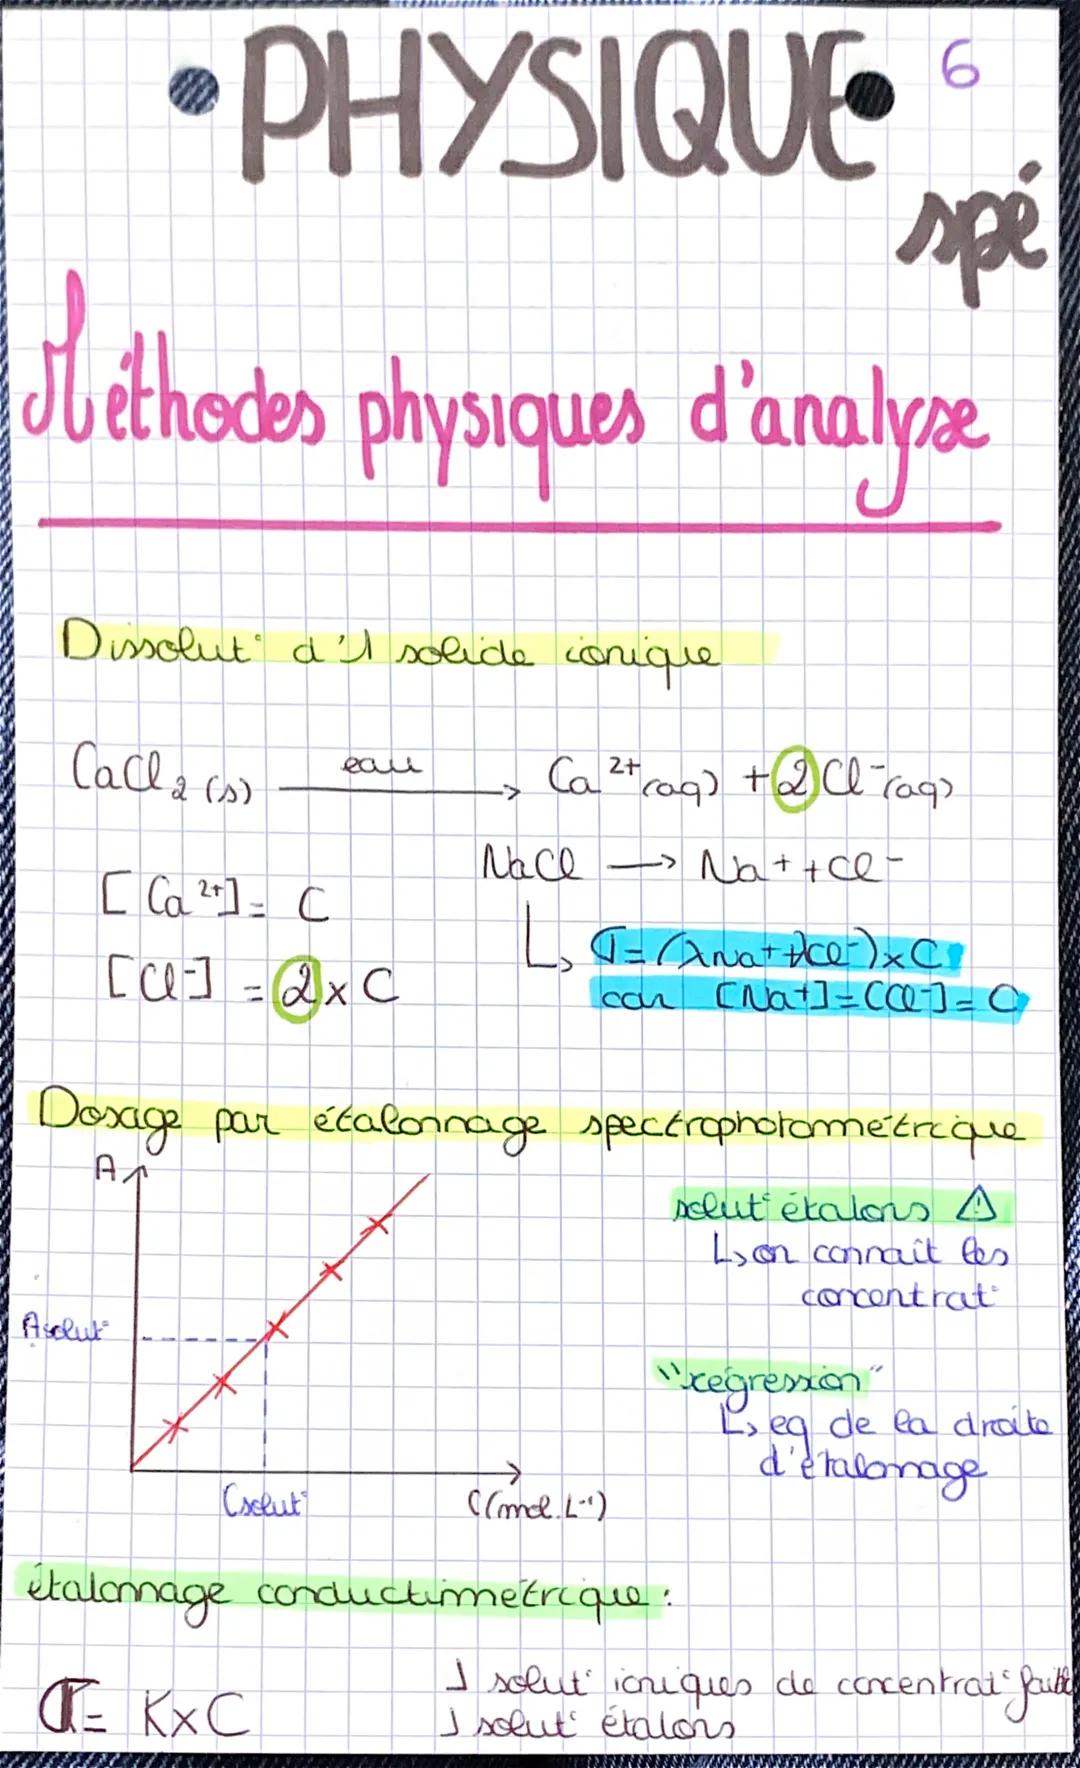 • PHYSIQUE • 6
spé
Méthodes physiques d'analyse
Dissolut° d'1 solide ionique
CaCl₂ (s) —eau→ Ca²⁺(aq) + 2Cl⁻(aq)
NaCl → Na⁺ + Cl⁻
[Ca²⁺] = C
↳ σ = (λNa⁺ + λCl⁻) × C
[Cl⁻] = 2 × C
car [Na⁺] = [Cl⁻] = C
Dosage par étalonnage spectrophotométrique
A
solut° étalons ⚠
↳ on connait les
concentrat°
Asolut°
"regression"
↳ eq de la droite
d'étalonnage
Csolut°
C(mol.L⁻¹)
étalonnage conductimétrique :
σ = K×C
⌋ solut° ioniques de concentrat° faible
⌋ solut° étalons